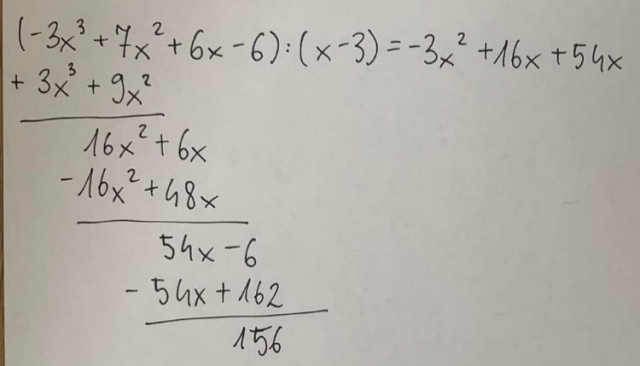 (-3x³+7x²+6x-6):(x-3)=-3x²+16x+54x
+3x³+9x²
16x²+6x
-16x²+48x
54x-6
-54x+162
156